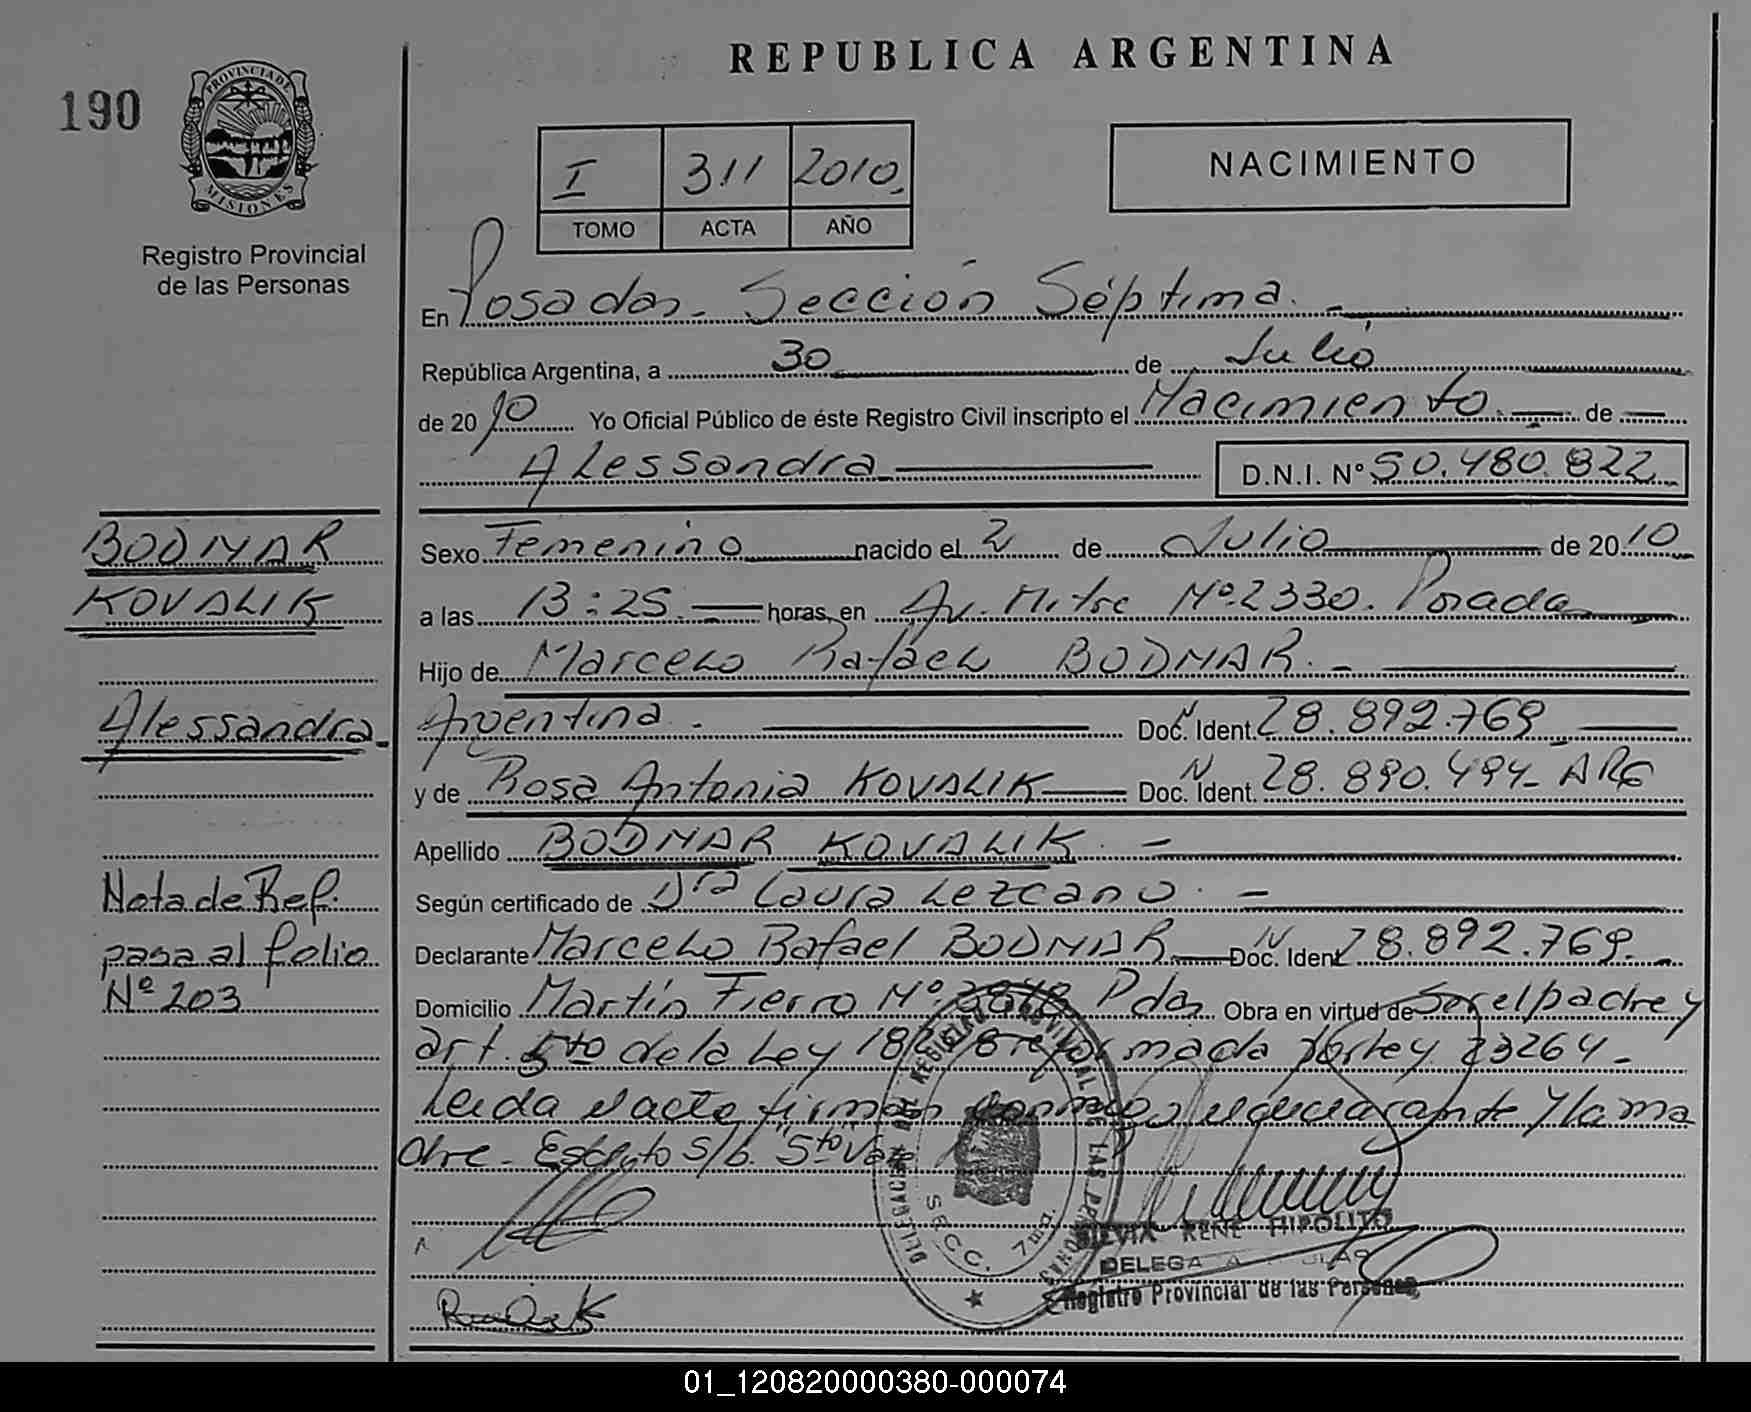 REPUBLICA ARGENTINA
190
PROVINCIA DE
MISIONES
Registro Provincial
de las Personas
I 311 2010
TOMO ACTA AÑO
NACIMIENTO
En Posadas - Sección Séptima. -
República Argentina, a 30 de Julio
de 2010 Yo Oficial Público de éste Registro Civil inscripto el Nacimiento. de
Alessandra D.N.I. Nº 50.480.822
BODMAR
KOVALIK
Alessandra
Nota de Ref:
pasa al folio
Nº 203
Sexo Femenino nacido el 2 de Julio de 2010
a las 13:25 horas, en Av. Mitre Nº 2330. Posadas
Hijo de Marcelo Rafael BODMAR. -
Argentina. Doc. N Ident. 28.892.769
y de Rosa Antonia KOVALIK Doc. N Ident. 28.890.494 - ARG
Apellido BODMAR KOVALIK. -
Según certificado de Dra Laura Lezcano. -
Declarante Marcelo Rafael BODMAR Doc. N Ident 28.892.769. -
Domicilio Martín Fierro Nº Pdas Obra en virtud de Ser el padre y
art. 5to de la Ley reformada por ley 23264 -
Leida el acta firman conmigo el declarante y la ma
dre - Escrito s/b. "5to" Vale
DELEGACION DEL REGISTRO PROVINCIAL DE LAS PERSONAS
SECC. 7ma.
SILVIA RENE HIPOLITO
DELEGADA TITULAR
Registro Provincial de las Personas
01_120820000380-000074